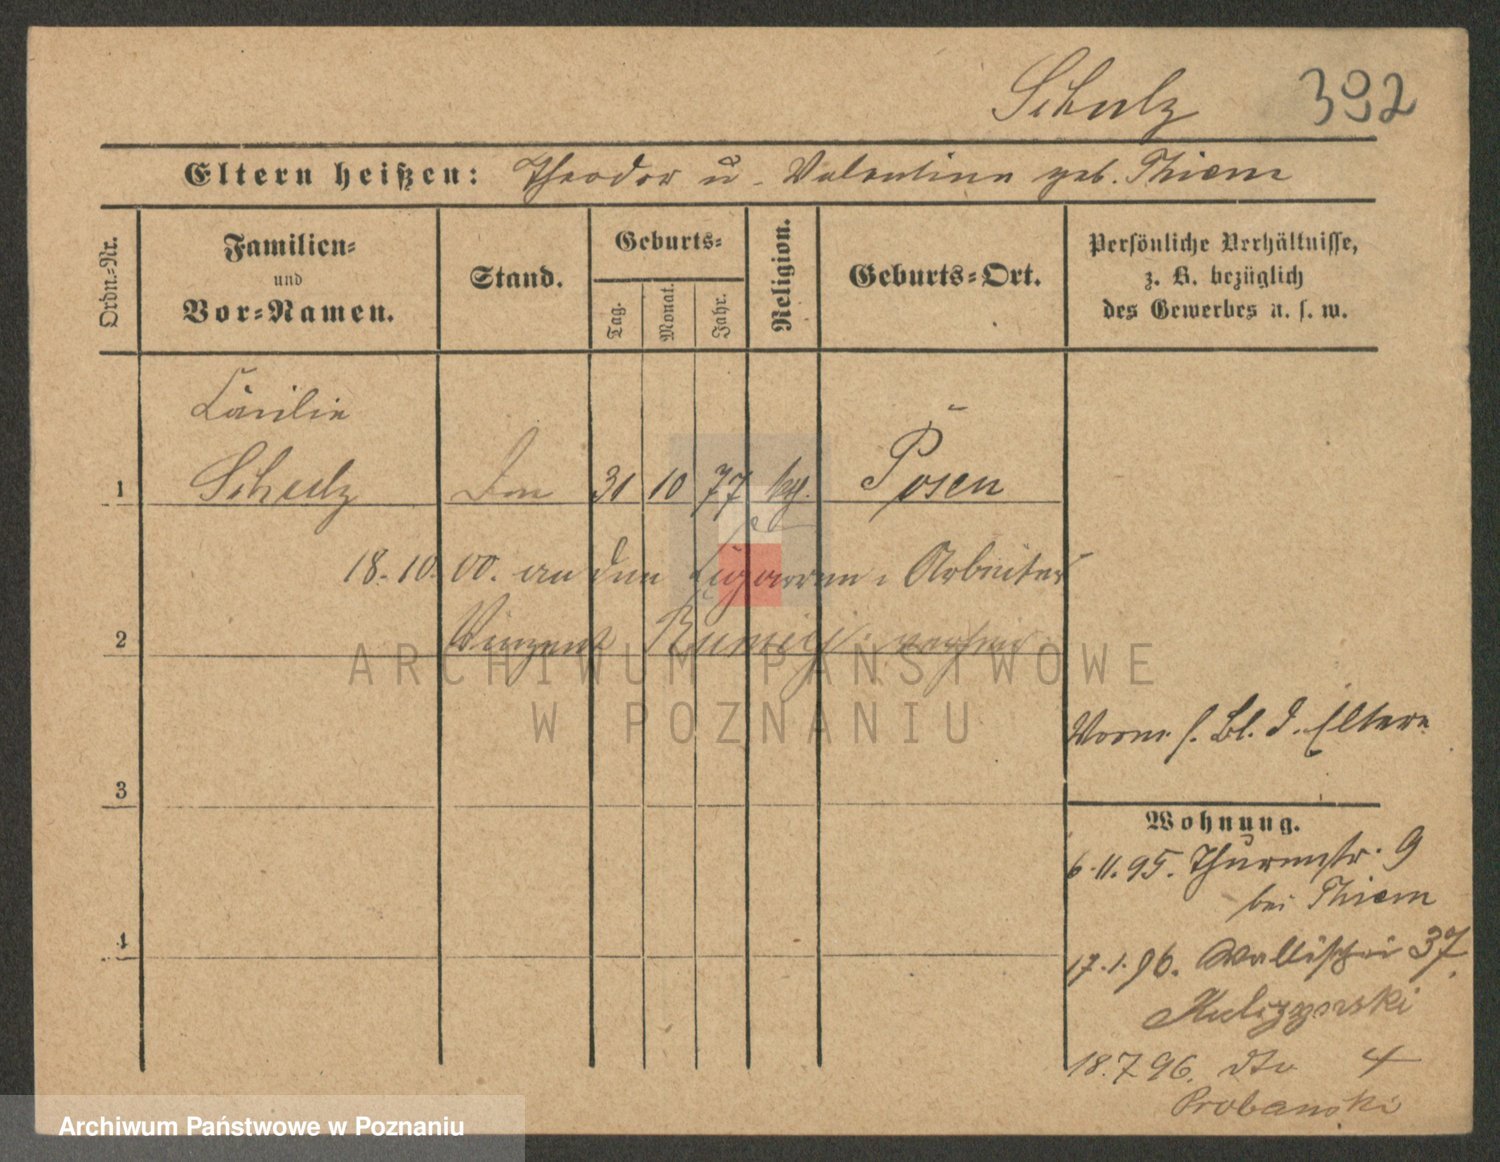 Schulz 392
Eltern heißen: Theodor u. Valentina geb. Thiem
Ordn.-Nr.
Familien-
und
Vor-Namen.
Stand.
Geburts-
Tag.
Monat.
Jahr.
Religion.
Geburts-Ort.
Persönliche Verhältnisse,
z. B. bezüglich
des Gewerbes u. s. w.
Cäcilie
1 Schulz 31 10 77 kth. Posen
18.10.00. an den Cigarren-Arbeiter
2 Vinzent verh.
ARCHIWUM PAŃSTWOWE
W POZNANIU
Vorm. s. Bl. d. Eltern
3
Wohnung.
6.11.95. Thurmstr. 9
bei Thiem
4
17.1.96. Wallischei 37
18.7.96. dto 4
Probanski
Archiwum Państwowe w Poznaniu